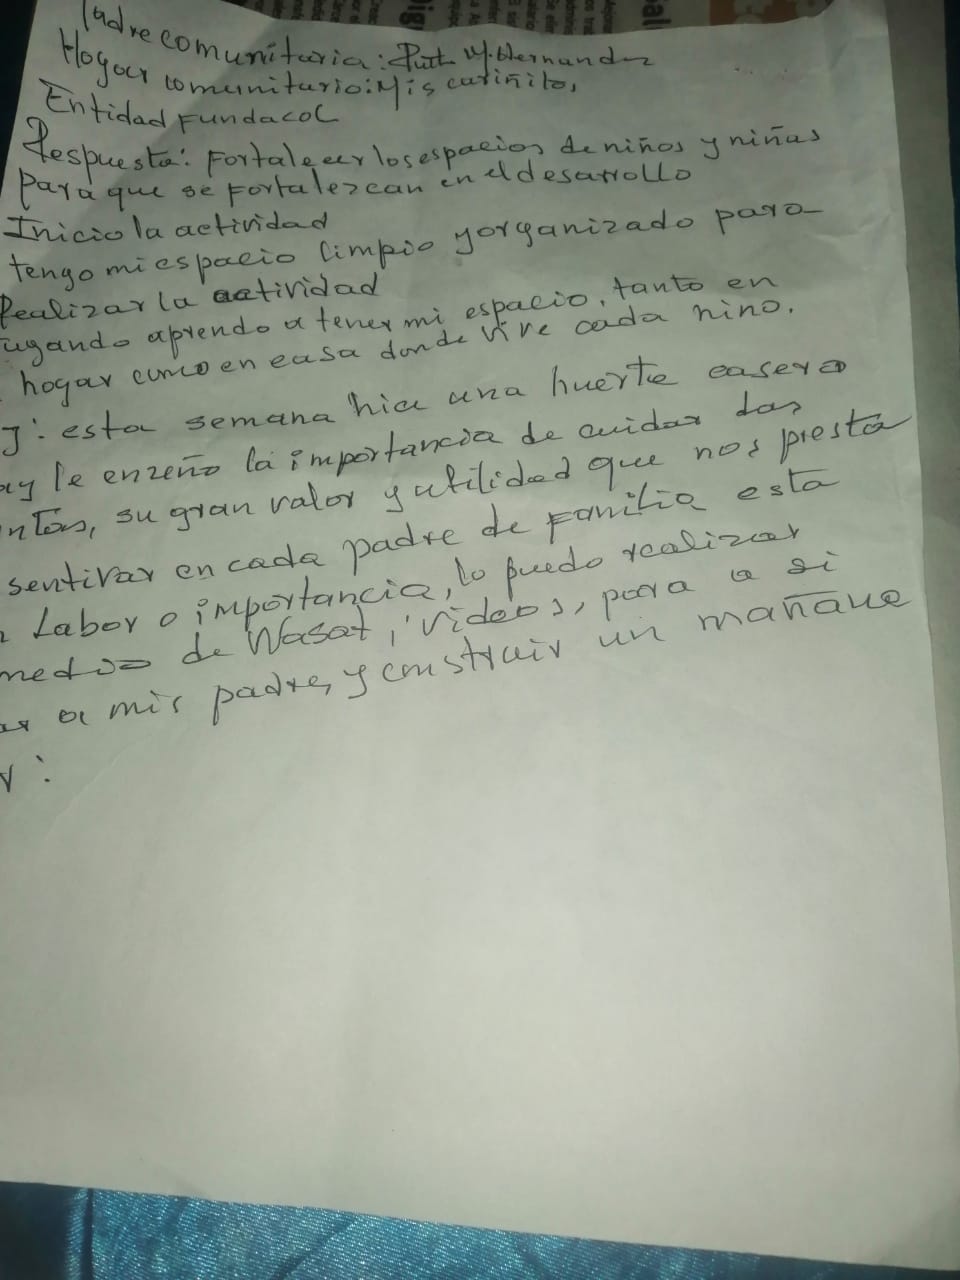 Madre comunitaria: Ruth M. Hernandez
Hogar comunitario: Mis cariñito,
Entidad Fundacol
Respuesta: Fortalecer los espacios de niños y niñas
para que se fortalezcan en el desarrollo
Inicio la actividad
tengo mi espacio limpio y organizado para
Realizar la actividad
ugando aprendo a tener mi espacio, tanto en
hogar como en casa donde vive cada nino.
J: esta semana hice una huerta casera
ay le enzeño la importancia de cuidar las
ntas, su gran valor y utilidad que nos presta
sentivar en cada padre de Familia esta
Labor o importancia, lo puedo realizar
medio de Wasat, videos, para a si
ar a mis padre, y construir un mañana
r: